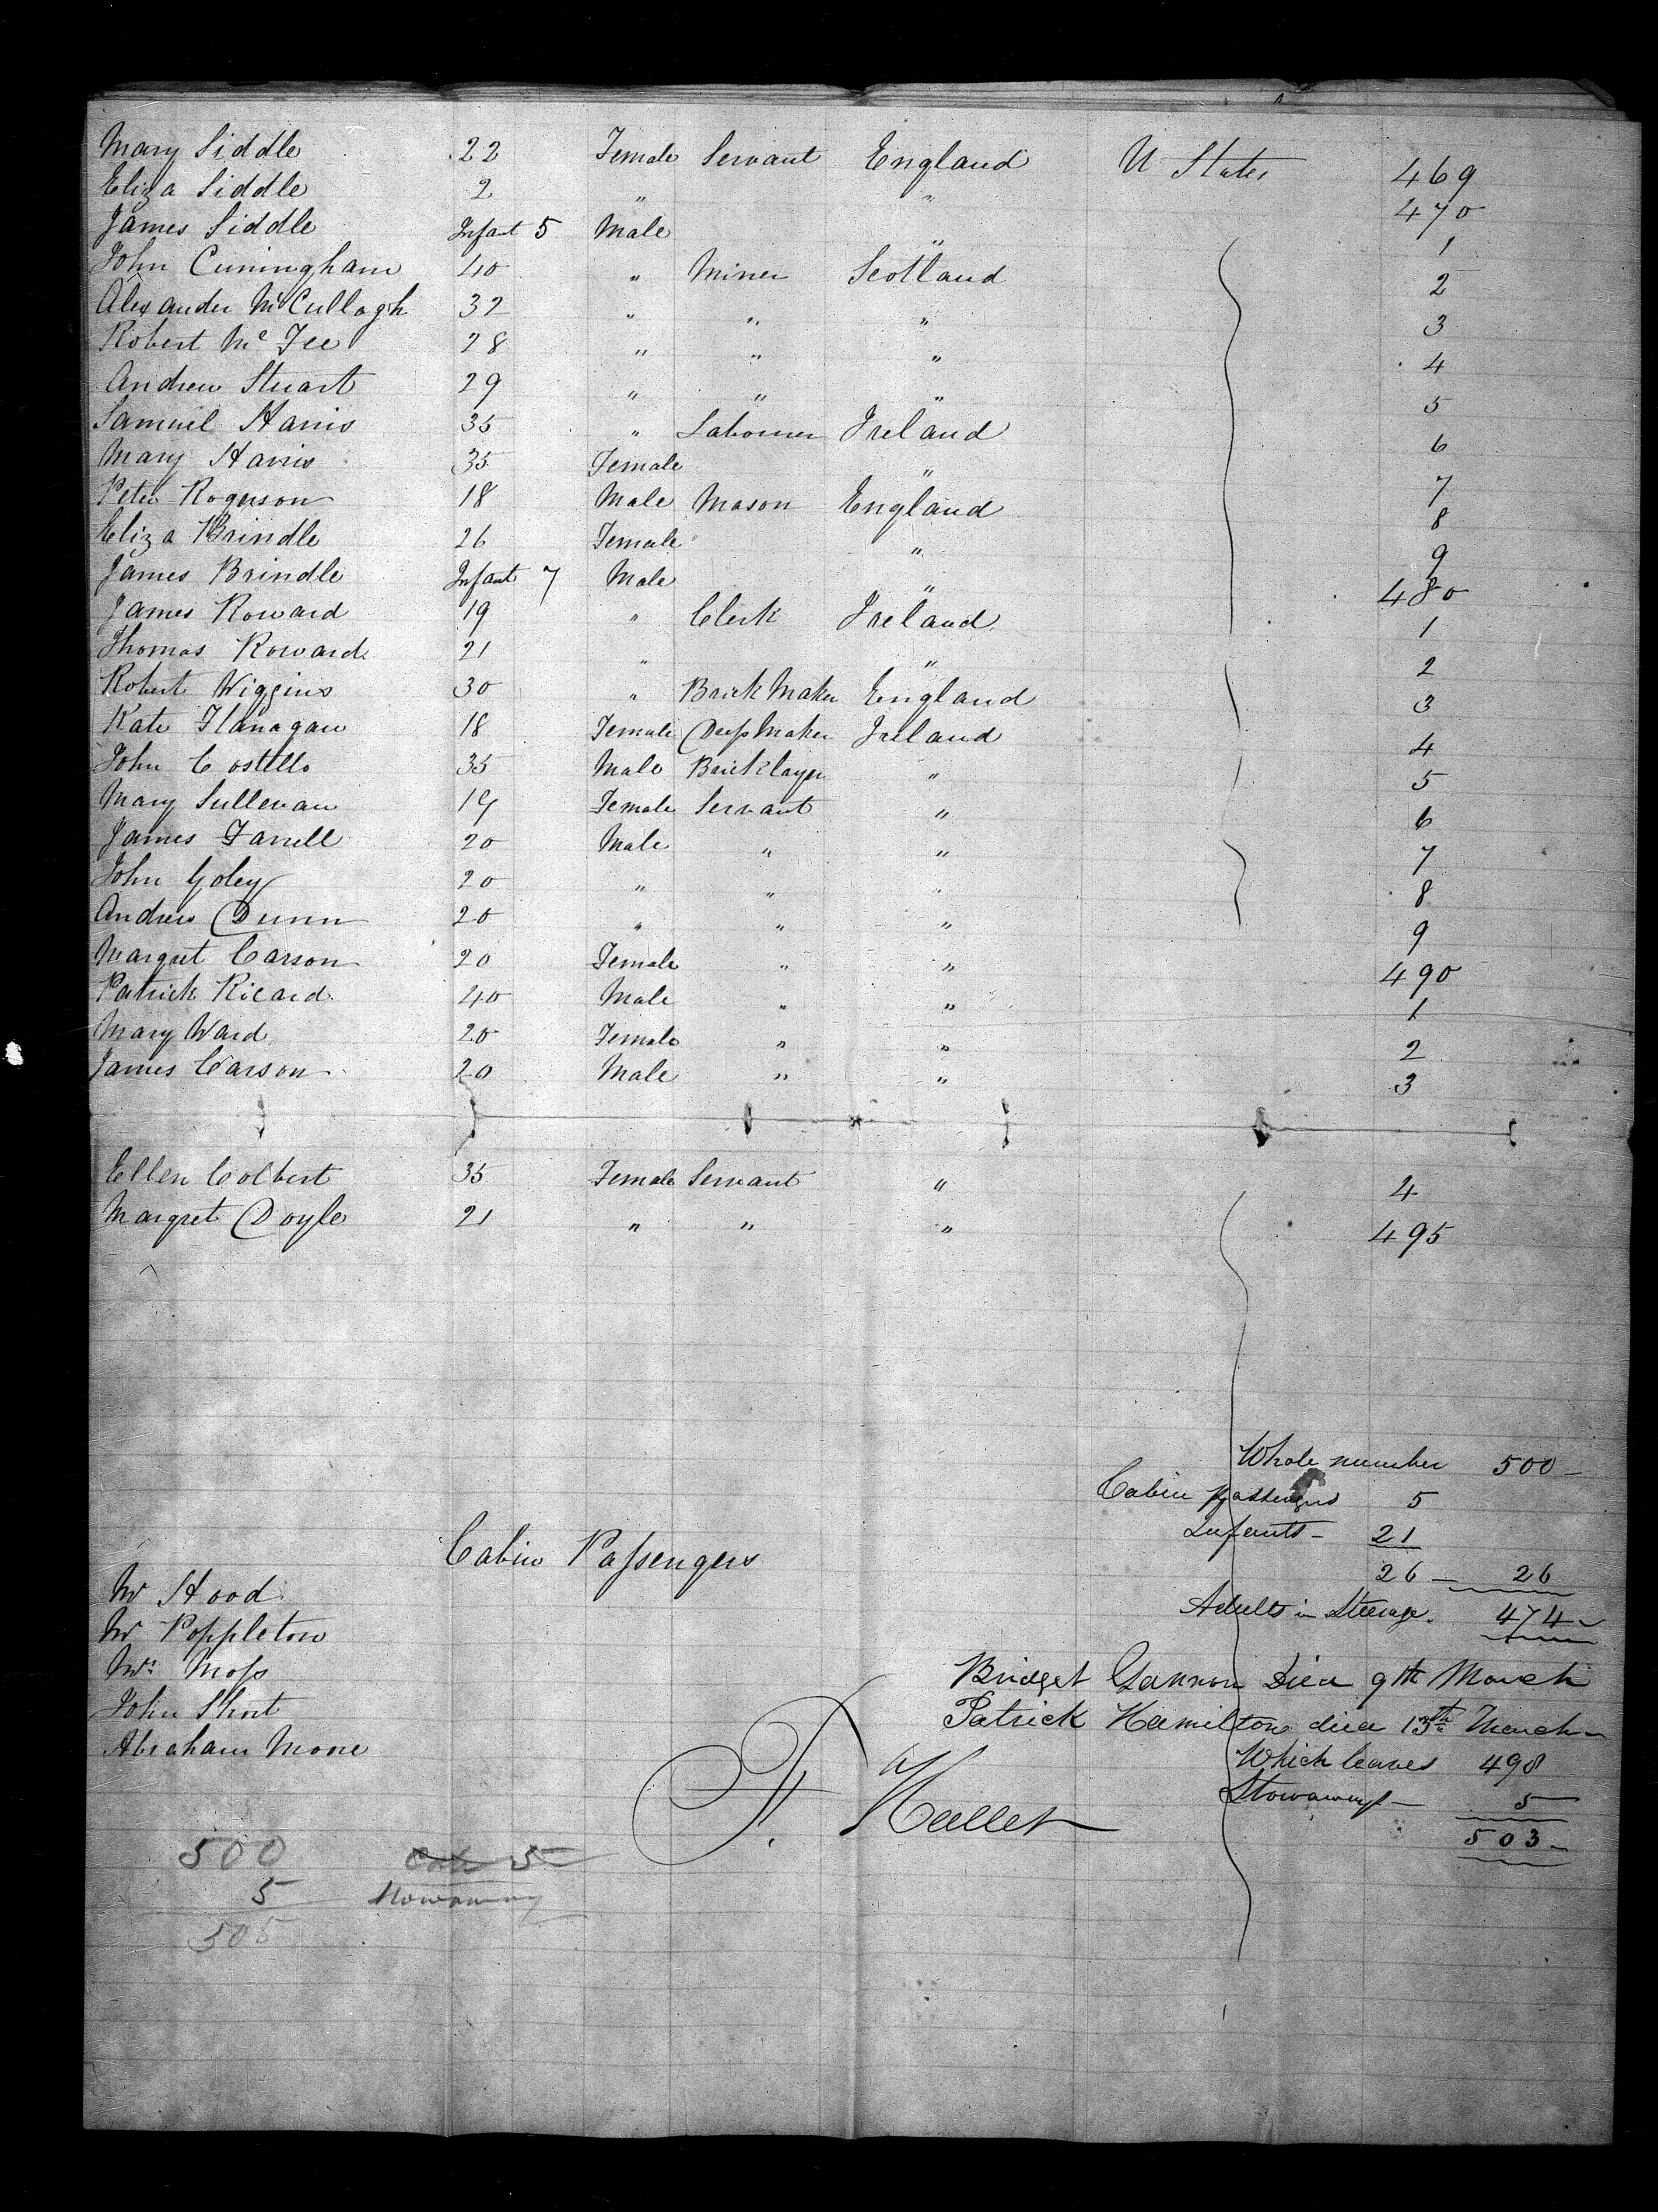 Mary Siddle 22 Female Servant England U States 469
Eliza Siddle 2 " " 470
James Siddle Infant 5 Male " 1
John Cuningham 40 " Miner Scotland 2
Alexander McCullogh 32 " " " 3
Robert Mc Fee 28 " " " 4
Andrew Stuart 29 " " " 5
Samuel Harris 35 " Labourer Ireland 6
Mary Harris 35 Female " 7
Peter Rogerson 18 Male Mason England 8
Eliza Brindle 26 Female " 9
James Brindle Infant 7 Male " 480
James Roward 19 " Clerk Ireland 1
Thomas Roward 21 " " 2
Robert Wiggins 30 " Brick Maker England 3
Kate Flanagan 18 Female Dress Maker Ireland 4
John Costello 35 Male Bricklayer " 5
Mary Sullevan 19 Female Servant " 6
James Farrell 20 Male " " 7
John Goley 20 " " " 8
Andrew Dunn 20 " " " 9
Margret Carson 20 Female " " 490
Patrick Ricard 40 Male " " 1
Mary Ward 20 Female " " 2
James Carson 20 Male " " 3
Ellen Colbert 35 Female Servant " 4
Margret Doyle 21 " " " 495
Whole number 500
Cabin passengers 5
Infants 21
26 26
Adults in Steerage 474
Cabin Passengers
Mr Hood
Mr Poppleton
Mrs Moss
John Short
Abraham Moore
Bridget Gannon Died 9th March
Patrick Hamilton died 13th March
Which leaves 498
Stowaways 5
503
F. W Hallet
500
5 Stowaway
505